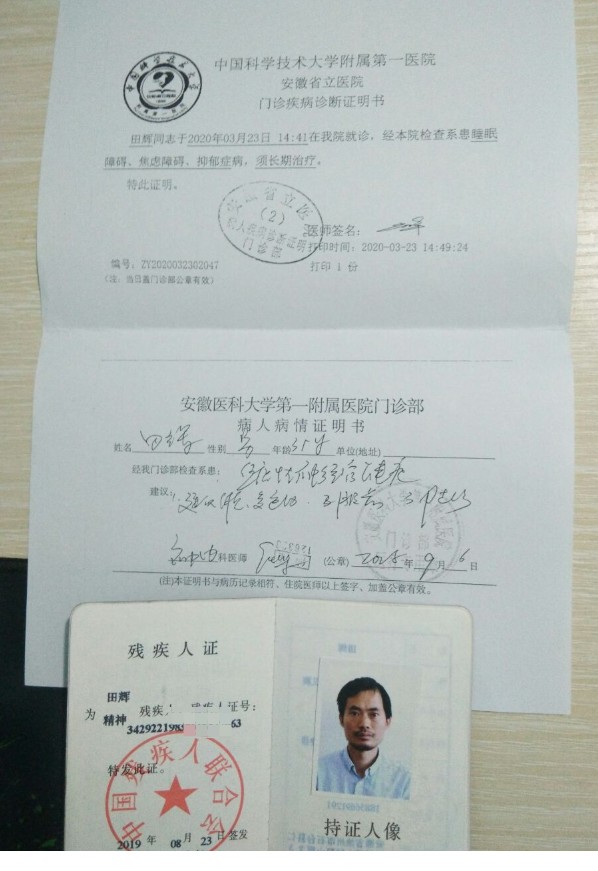 中国科学技术大学附属第一医院
安徽省立医院
门诊疾病诊断证明书
田辉同志于2020年03月23日 14:41在我院就诊，经本院检查系患睡眠
障碍、焦虑障碍、抑郁症病，须长期治疗。
特此证明。
安徽省立医
(2)
病人疾病诊断证明
门诊部
医师签名：
打印时间：2020-03-23 14:49:24
编号：ZY2020032302047
打印 1 份
(注：当日盖门诊部公章有效)
安徽医科大学第一附属医院门诊部
病人病情证明书
姓名 田辉 性别 男 年龄 单位(地址)
经我门诊部检查系患：
建议：
科医师 (公章) 年 9 月 6 日
(注)本证明书与病历记录相符、住院医师以上签字、加盖公章有效。
残疾人证
田辉
为 精神 残疾人 残疾人证号：
3429221983 63
特发此证。
中国残疾人联合会
2019 年 08 月 23 日签发
持证人像